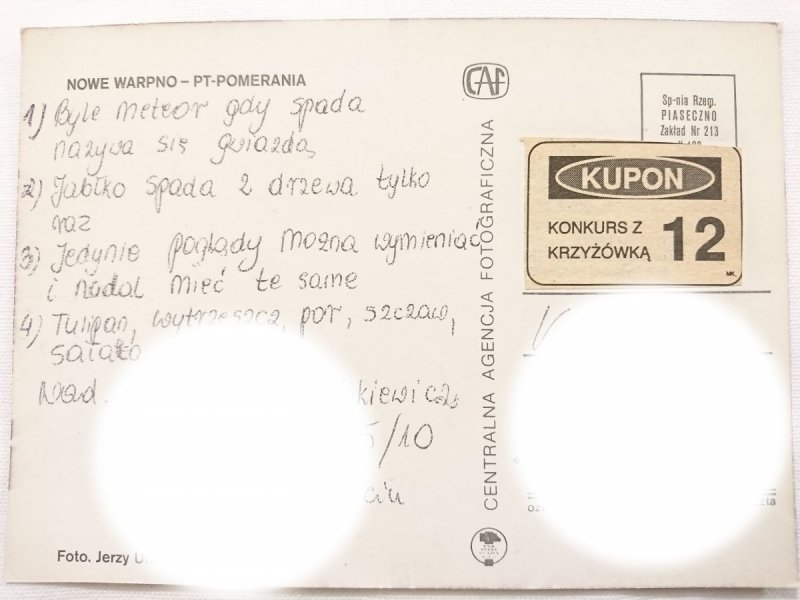 NOWE WARPNO – PT-POMERANIA
1) Byle meteor gdy spada
nazywa się gwiazdą
2) Jabłko spada z drzewa tylko
raz
3) Jedynie poglądy można wymieniać
i nadal mieć te same
4) Tulipan, wytrzeszcz, por, szczaw,
Nad.
5/10
Foto. Jerzy
CAF
CENTRALNA AGENCJA FOTOGRAFICZNA
Sp-nia Rzem.
PIASECZNO
Zakład Nr 213
KUPON
KONKURS Z
KRZYŻÓWKĄ
12
MK